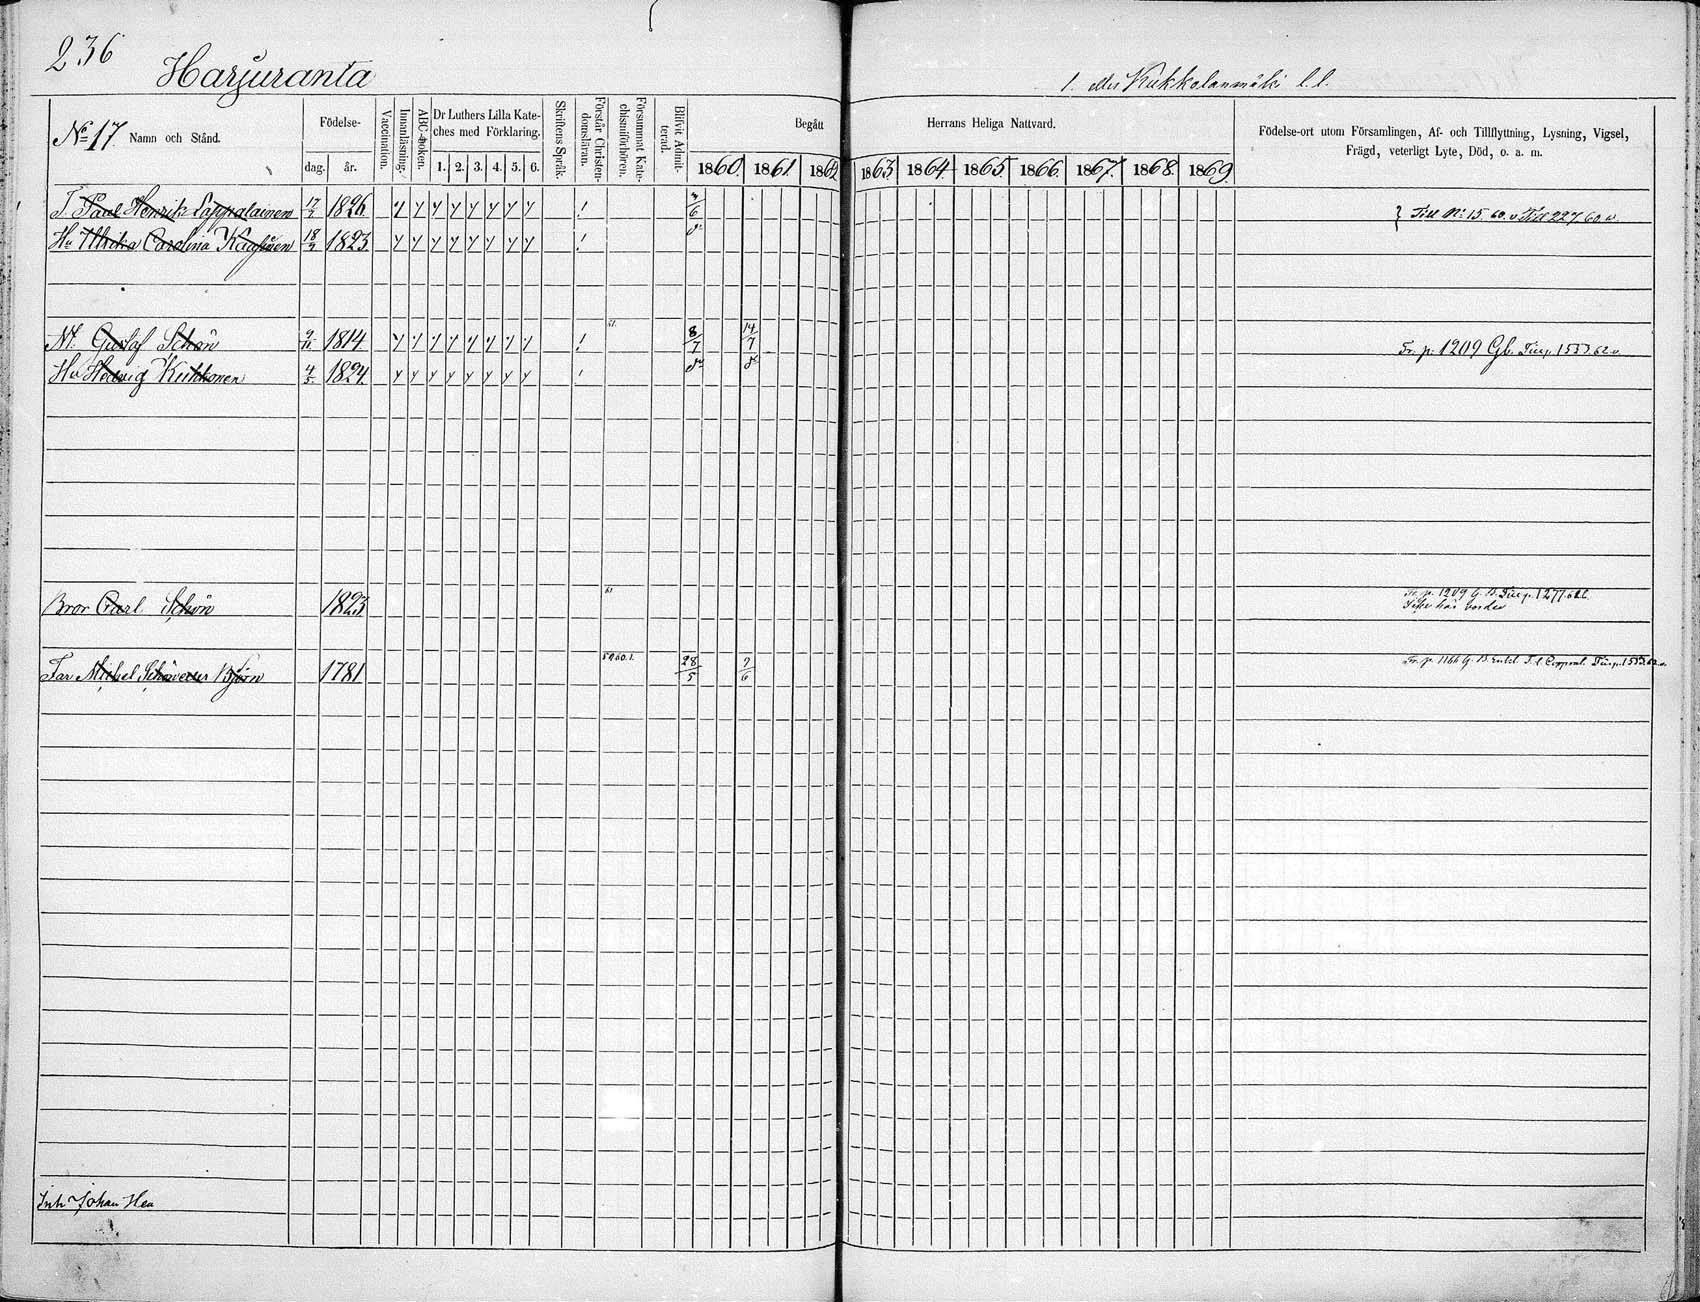 236
Harjuranta
1. eller Kukkolanmäki l.l.
No 17. Namn och Stånd.
Födelse-
dag. år.
Vaccination.
Innanläsning.
ABC-boken.
Dr Luthers Lilla Kate-
ches med Förklaring.
1. 2. 3. 4. 5. 6.
Skriftens Språk.
Förstår Christen-
domsläran.
Försummat Kate-
chismiförhören.
Blifvit Admit-
terad.
Begått
Herrans Heliga Nattvard.
1860. 1861. 1862 1863. 1864 1865. 1866. 1867. 1868. 1869.
Födelse-ort utom Församlingen, Af- och Tillflyttning, Lysning, Vigsel,
Frägd, veterligt Lyte, Död, o. a. m.
T. Paul Henrik Lappalainen 17/7 1826 Till No 15 60. v Till 227 60. v.
Hu Ulrika Carolina 18/9 1823
Gustaf Schön 9/11 1814 61. 8/7 14/7 Fr. p. 1209 Gb. 1553.62 v.
Hu Hedvig Kukkonen 4/5 1824
Bror Carl Schön 1823 61 Fr. p. 1209 G. B. 1277
Far Michel Björn 1781 59.60.1. 28/5 7/6 Fr. p. 1166 G. B.
Inh Johan